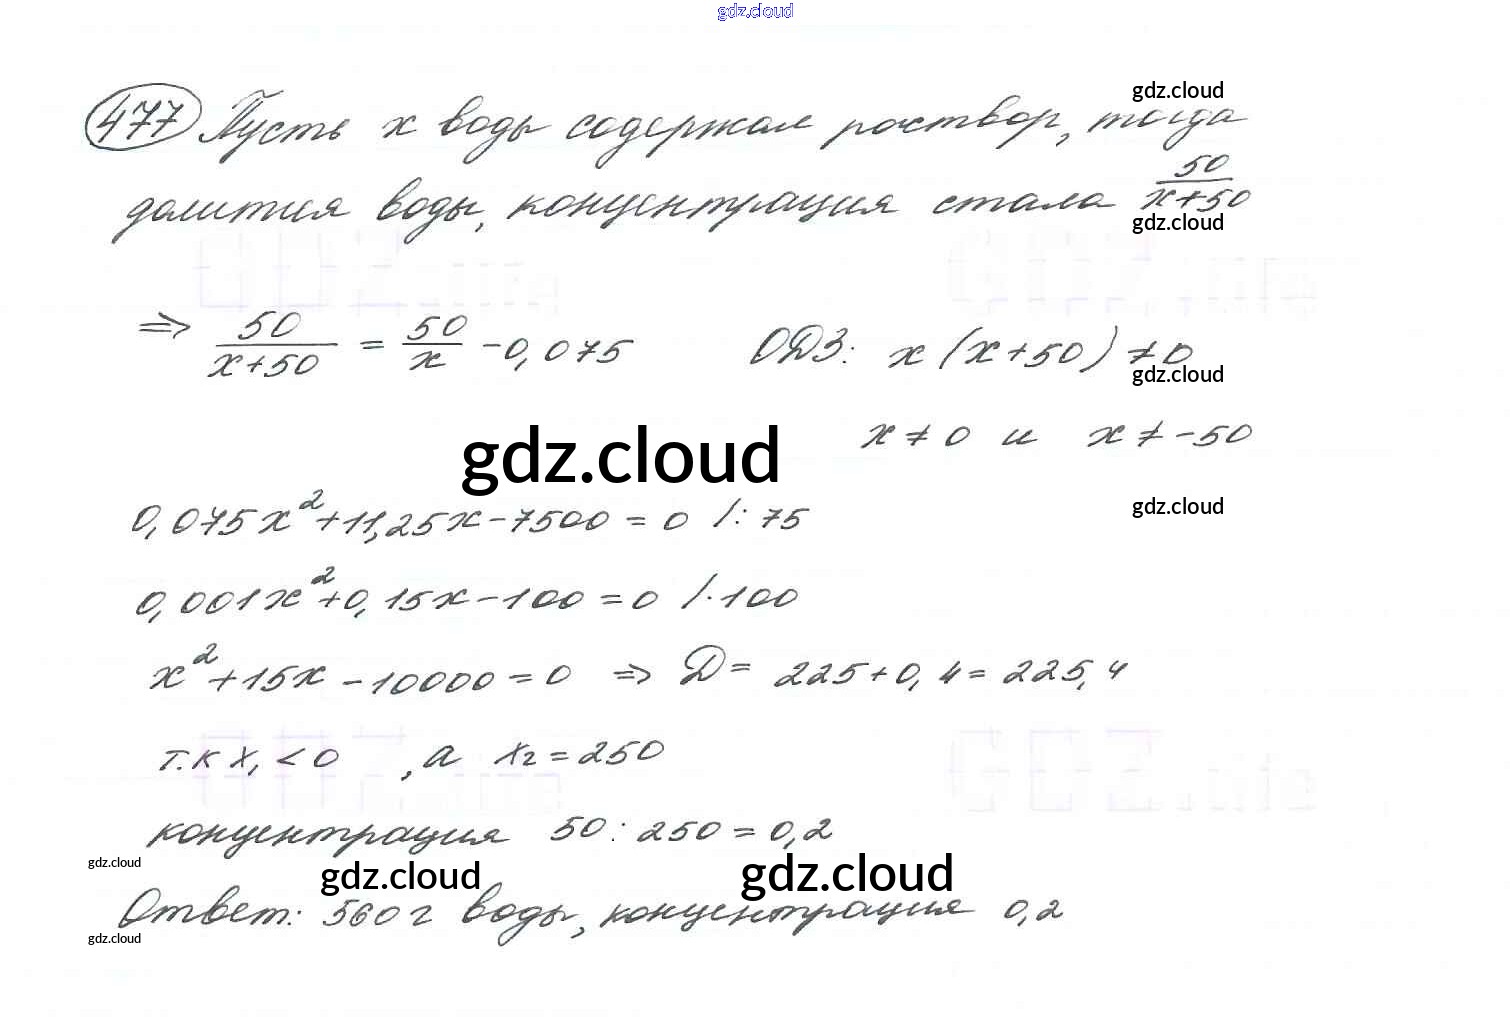 gdz.cloud
477 Пусть x воды содержал раствор, тогда
gdz.cloud
долития воды, концентрация стала 50/(x+50)
gdz.cloud
⇒ 50/(x+50) = 50/x - 0,075 ОДЗ: x(x+50) ≠ 0
gdz.cloud
x ≠ 0 и x ≠ -50
gdz.cloud
gdz.cloud
0,075x² + 11,25x - 7500 = 0 /: 75
0,001x² + 0,15x - 100 = 0 /· 100
x² + 15x - 10000 = 0 ⇒ Д = 225 + 0,4 = 225,4
т.к x₁ < 0, а x₂ = 250
концентрация 50 : 250 = 0,2
gdz.cloud
gdz.cloud
gdz.cloud
Ответ: 560 г воды, концентрация 0,2
gdz.cloud